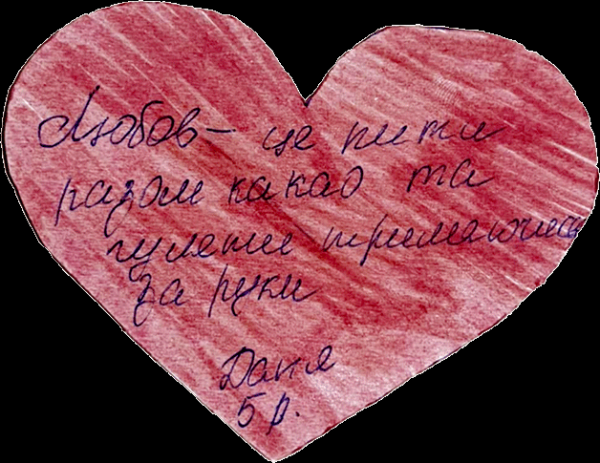 Любов – це пити
разом какао та
гуляти тримаючись
за руки
Даня
5 р.